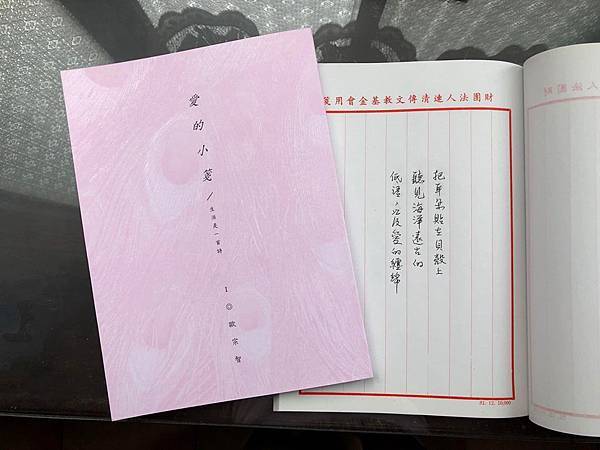 愛的小箋/生活是一首詩
I◎歐宗智
財團法人連清傳文教基金會用箋
把耳朵貼在貝殼上
聽見海洋遠古的
低語，以及愛的纏綿
81. 12. 10,000
財團法人